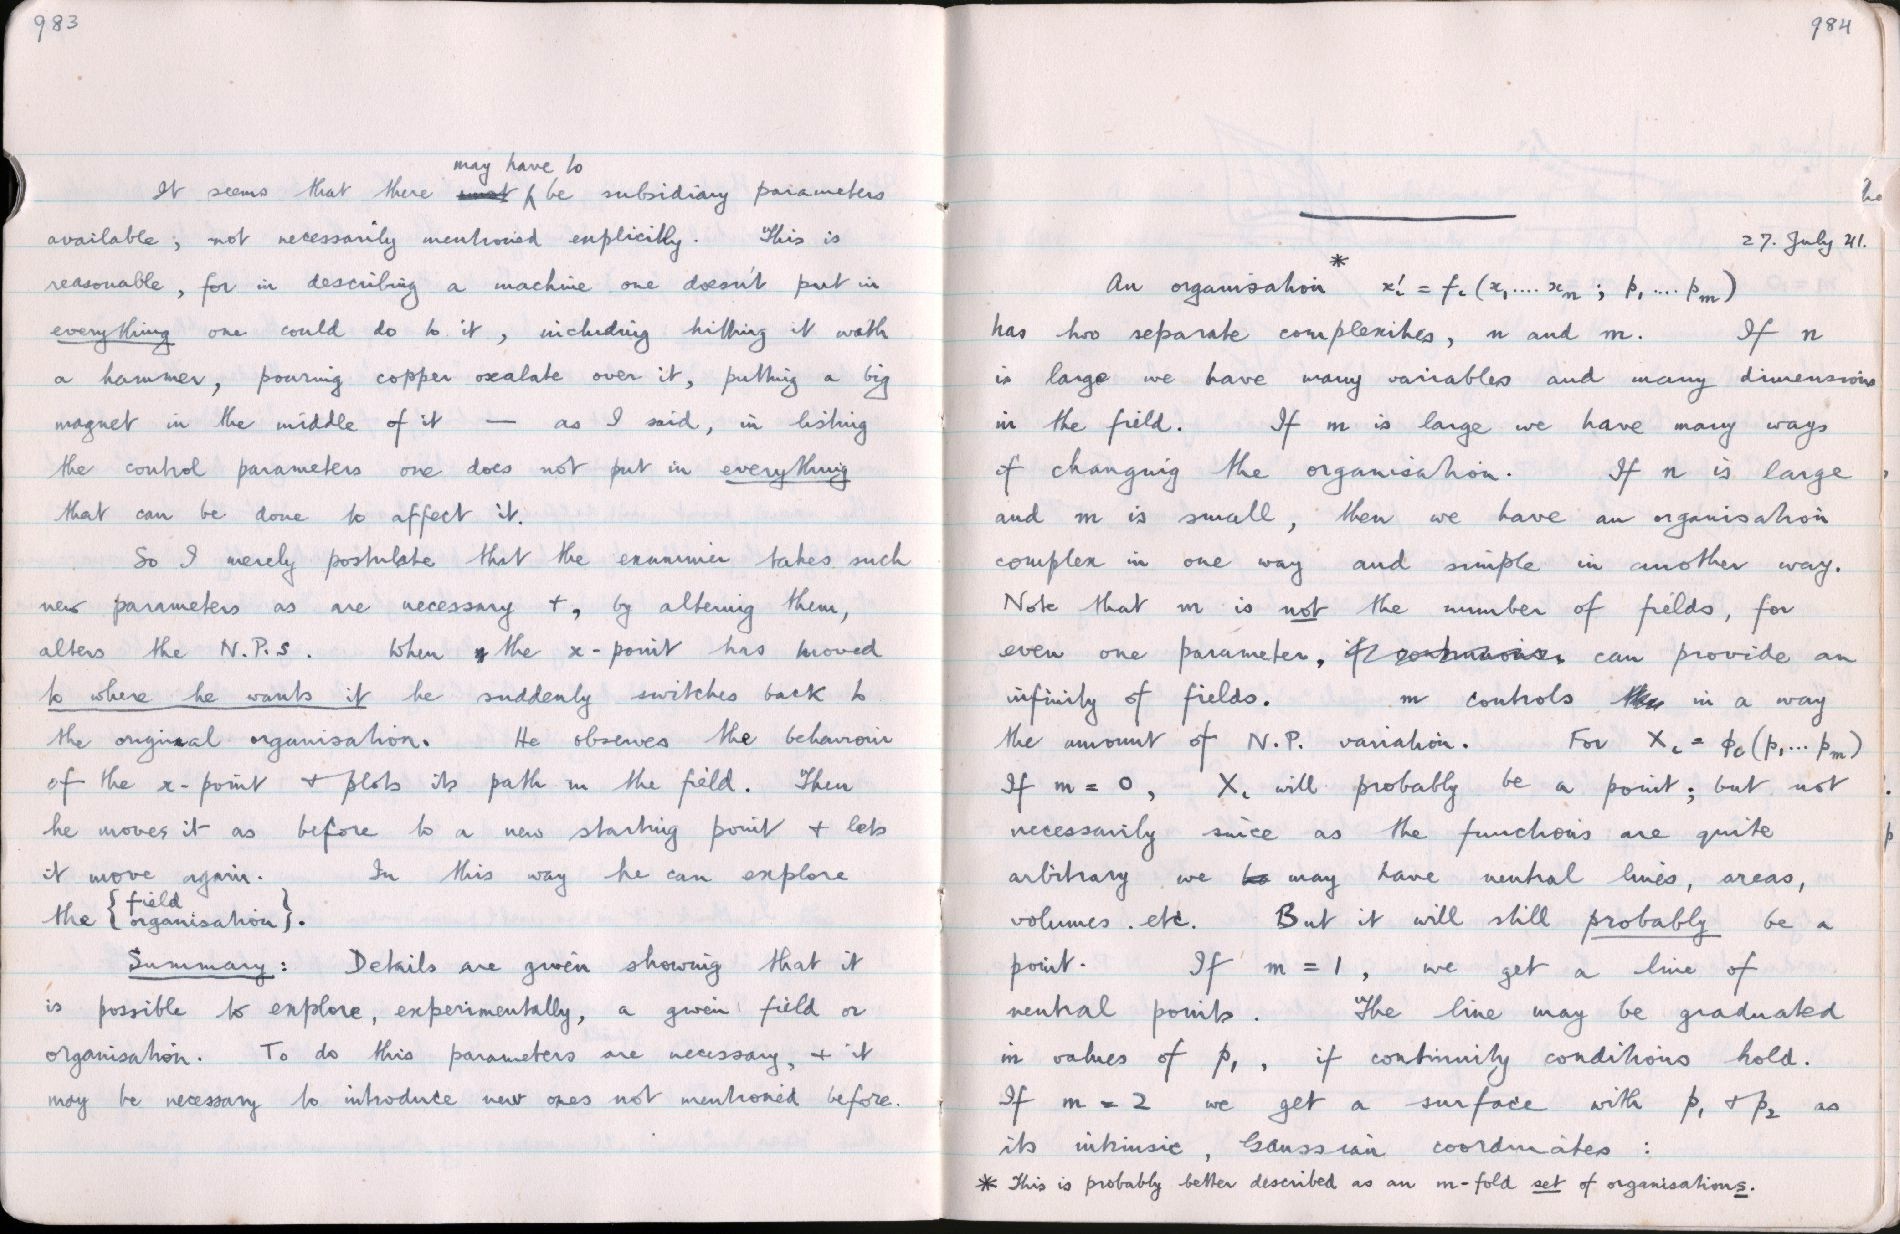 983
may have to
It seems that there must be subsidiary parameters
available, not necessarily mentioned explicitly. This is
reasonable, for in describing a machine one doesn't put in
everything one could do to it, including hitting it with
a hammer, pouring copper oxalate over it, putting a big
magnet in the middle of it — as I said, in listing
the control parameters one does not put in everything
that can be done to affect it.
So I merely postulate that the examiner takes such
new parameters as are necessary +, by altering them,
alters the N.P.s. When the x-point has moved
to where he wants it he suddenly switches back to
the original organisation. He observes the behaviour
of the x-point + plots its path in the field. Then
he moves it as before to a new starting point + lets
it move again. In this way he can explore
the { field
organisation }.
Summary: Details are given showing that it
is possible to explore, experimentally, a given field or
organisation. To do this parameters are necessary, + it
may be necessary to introduce new ones not mentioned before.
984
27. July 41.
An organisation* x'ᵢ = fᵢ(x₁....xₙ; p₁....pₘ)
has two separate complexities, n and m. If n
is large we have many variables and many dimensions
in the field. If m is large we have many ways
of changing the organisation. If n is large
and m is small, then we have an organisation
complex in one way and simple in another way.
Note that m is not the number of fields, for
even one parameter, if continuous, can provide an
infinity of fields. m controls in a way
the amount of N.P. variation. For Xᵢ = ϕᵢ(p₁...pₘ)
If m = 0, Xᵢ will probably be a point; but not
necessarily since as the functions are quite
arbitrary we may have neutral lines, areas,
volumes. etc. But it will still probably be a
point. If m = 1, we get a line of
neutral points. The line may be graduated
in values of p₁, if continuity conditions hold.
If m = 2 we get a surface with p₁ + p₂ as
its intrinsic, Gaussian coordinates:
* This is probably better described as an m-fold set of organisations.